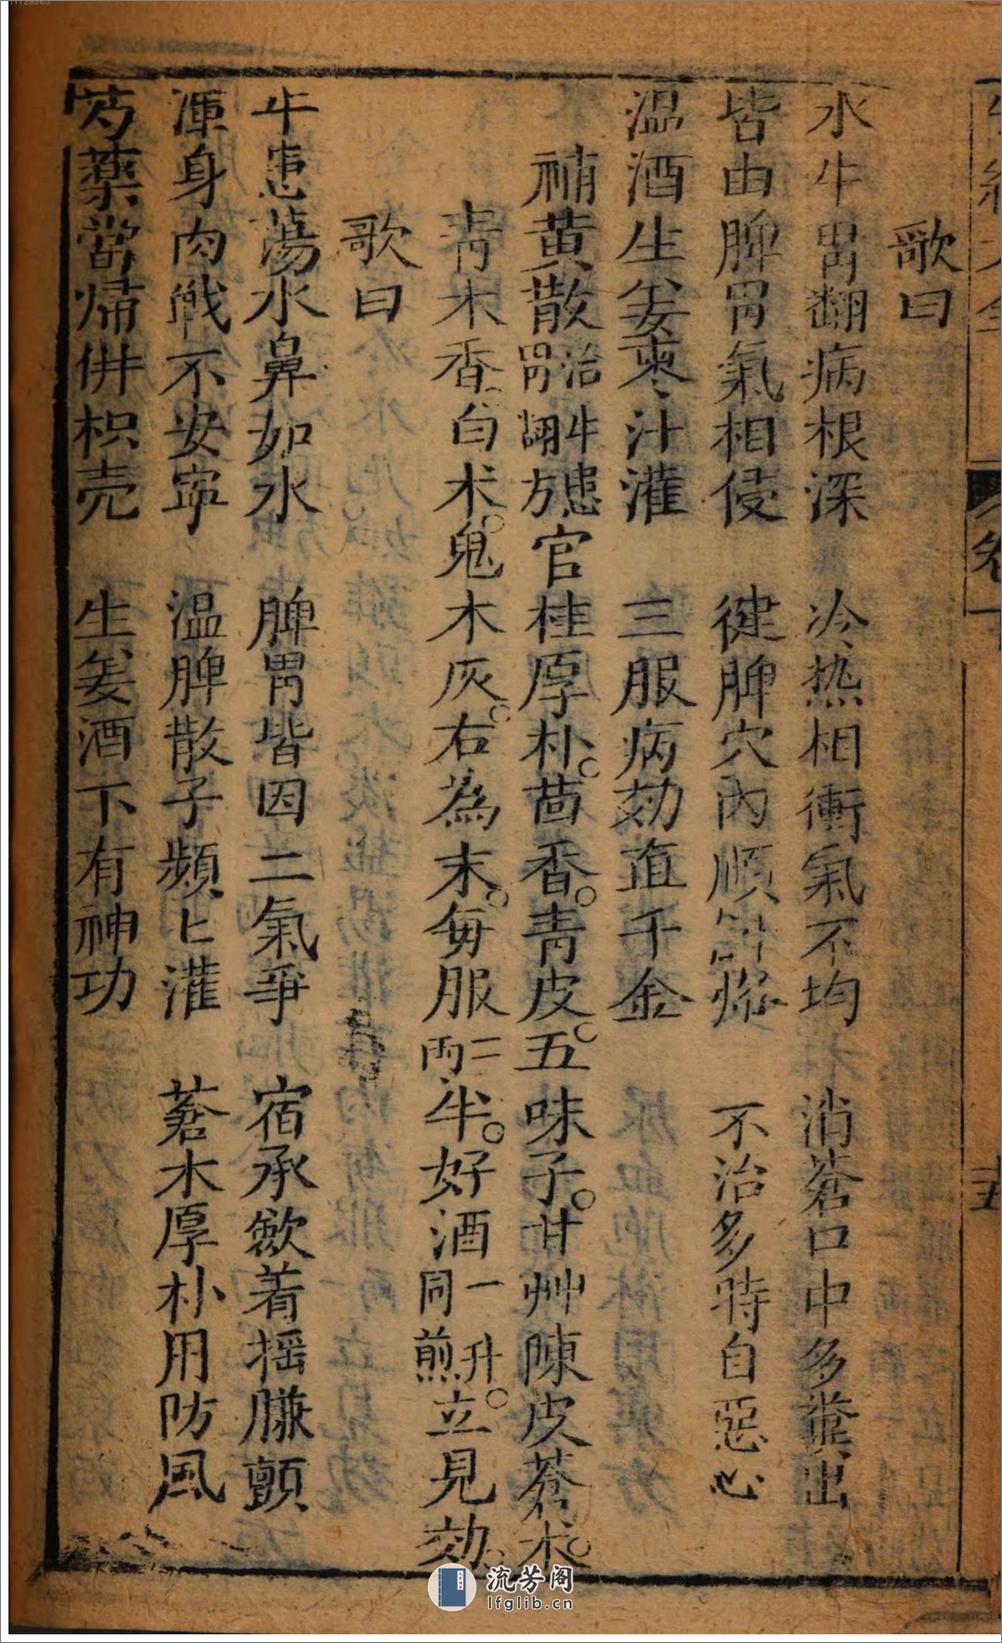 歌曰
水牛胃翻病根深 冷热相衝氣不均 消蒼口中多糞出
皆由脾胃氣相侵 健脾穴內順 不治多時自惡心
温酒生姜棗汁灌 三服病効直千金
補黄散治牛患胃翻方官桂厚朴茴香青皮五味子甘艸陳皮蒼术
青木香白术鬼木灰右為末每服二兩半好酒一升同煎立見効
歌曰
牛患蕩水鼻如水 脾胃皆因二氣爭 宿承歛着搖膁顫
渾身肉戰不安寧 温脾散子頻匕灌 蒼木厚朴用防風
芍藥當㷌併枳壳 生姜酒下有神功
卷
十五
流芳阁
lfglib.cn